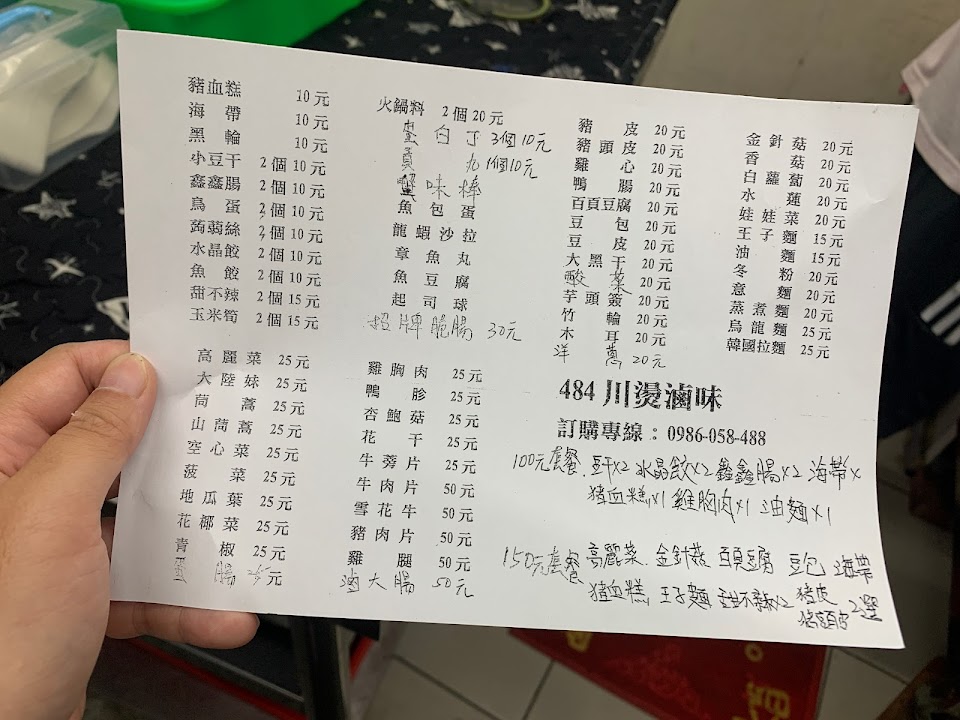 豬血糕 10元
海帶 10元
黑輪 10元
小豆干 2個10元
鑫鑫腸 2個10元
鳥蛋 2個10元
蒟蒻絲 2個10元
水晶餃 2個10元
魚餃 2個10元
甜不辣 2個15元
玉米筍 2個15元
火鍋料 2個20元
蛋白丁 3個10元
貢丸 1個10元
蟹味棒
魚包蛋
龍蝦沙拉
章魚丸
魚豆腐
起司球
招牌脆腸 30元
豬皮 20元
豬頭皮 20元
雞心 20元
鴨腸 20元
百頁豆腐 20元
豆包 20元
豆皮 20元
大黑干 20元
酸菜 20元
芋頭簽 20元
竹輪 20元
木耳 20元
洋蔥 20元
金針菇 20元
香菇 20元
白蘿蔔 20元
水蓮 20元
娃娃菜 20元
王子麵 15元
油麵 15元
冬粉 20元
意麵 20元
蒸煮麵 20元
烏龍麵 25元
韓國拉麵 25元
高麗菜 25元
大陸妹 25元
茼蒿 25元
山茼蒿 25元
空心菜 25元
菠菜 25元
地瓜葉 25元
花椰菜 25元
青椒 25元
蛋腸 25元
雞胸肉 25元
鴨胗 25元
杏鮑菇 25元
花干 25元
牛蒡片 25元
牛肉片 50元
雪花牛 50元
豬肉片 50元
雞腿 50元
滷大腸 50元
484川燙滷味
訂購專線：0986-058-488
100元套餐.豆干x2 水晶餃x2 鑫鑫腸x2 海帶x
豬血糕x1 雞胸肉x1 油麵x1
150元套餐 高麗菜. 金針菇 百頁豆腐 豆包 海帶
豬血糕. 王子麵 甜不辣x2 豬皮
豬頭皮 2選